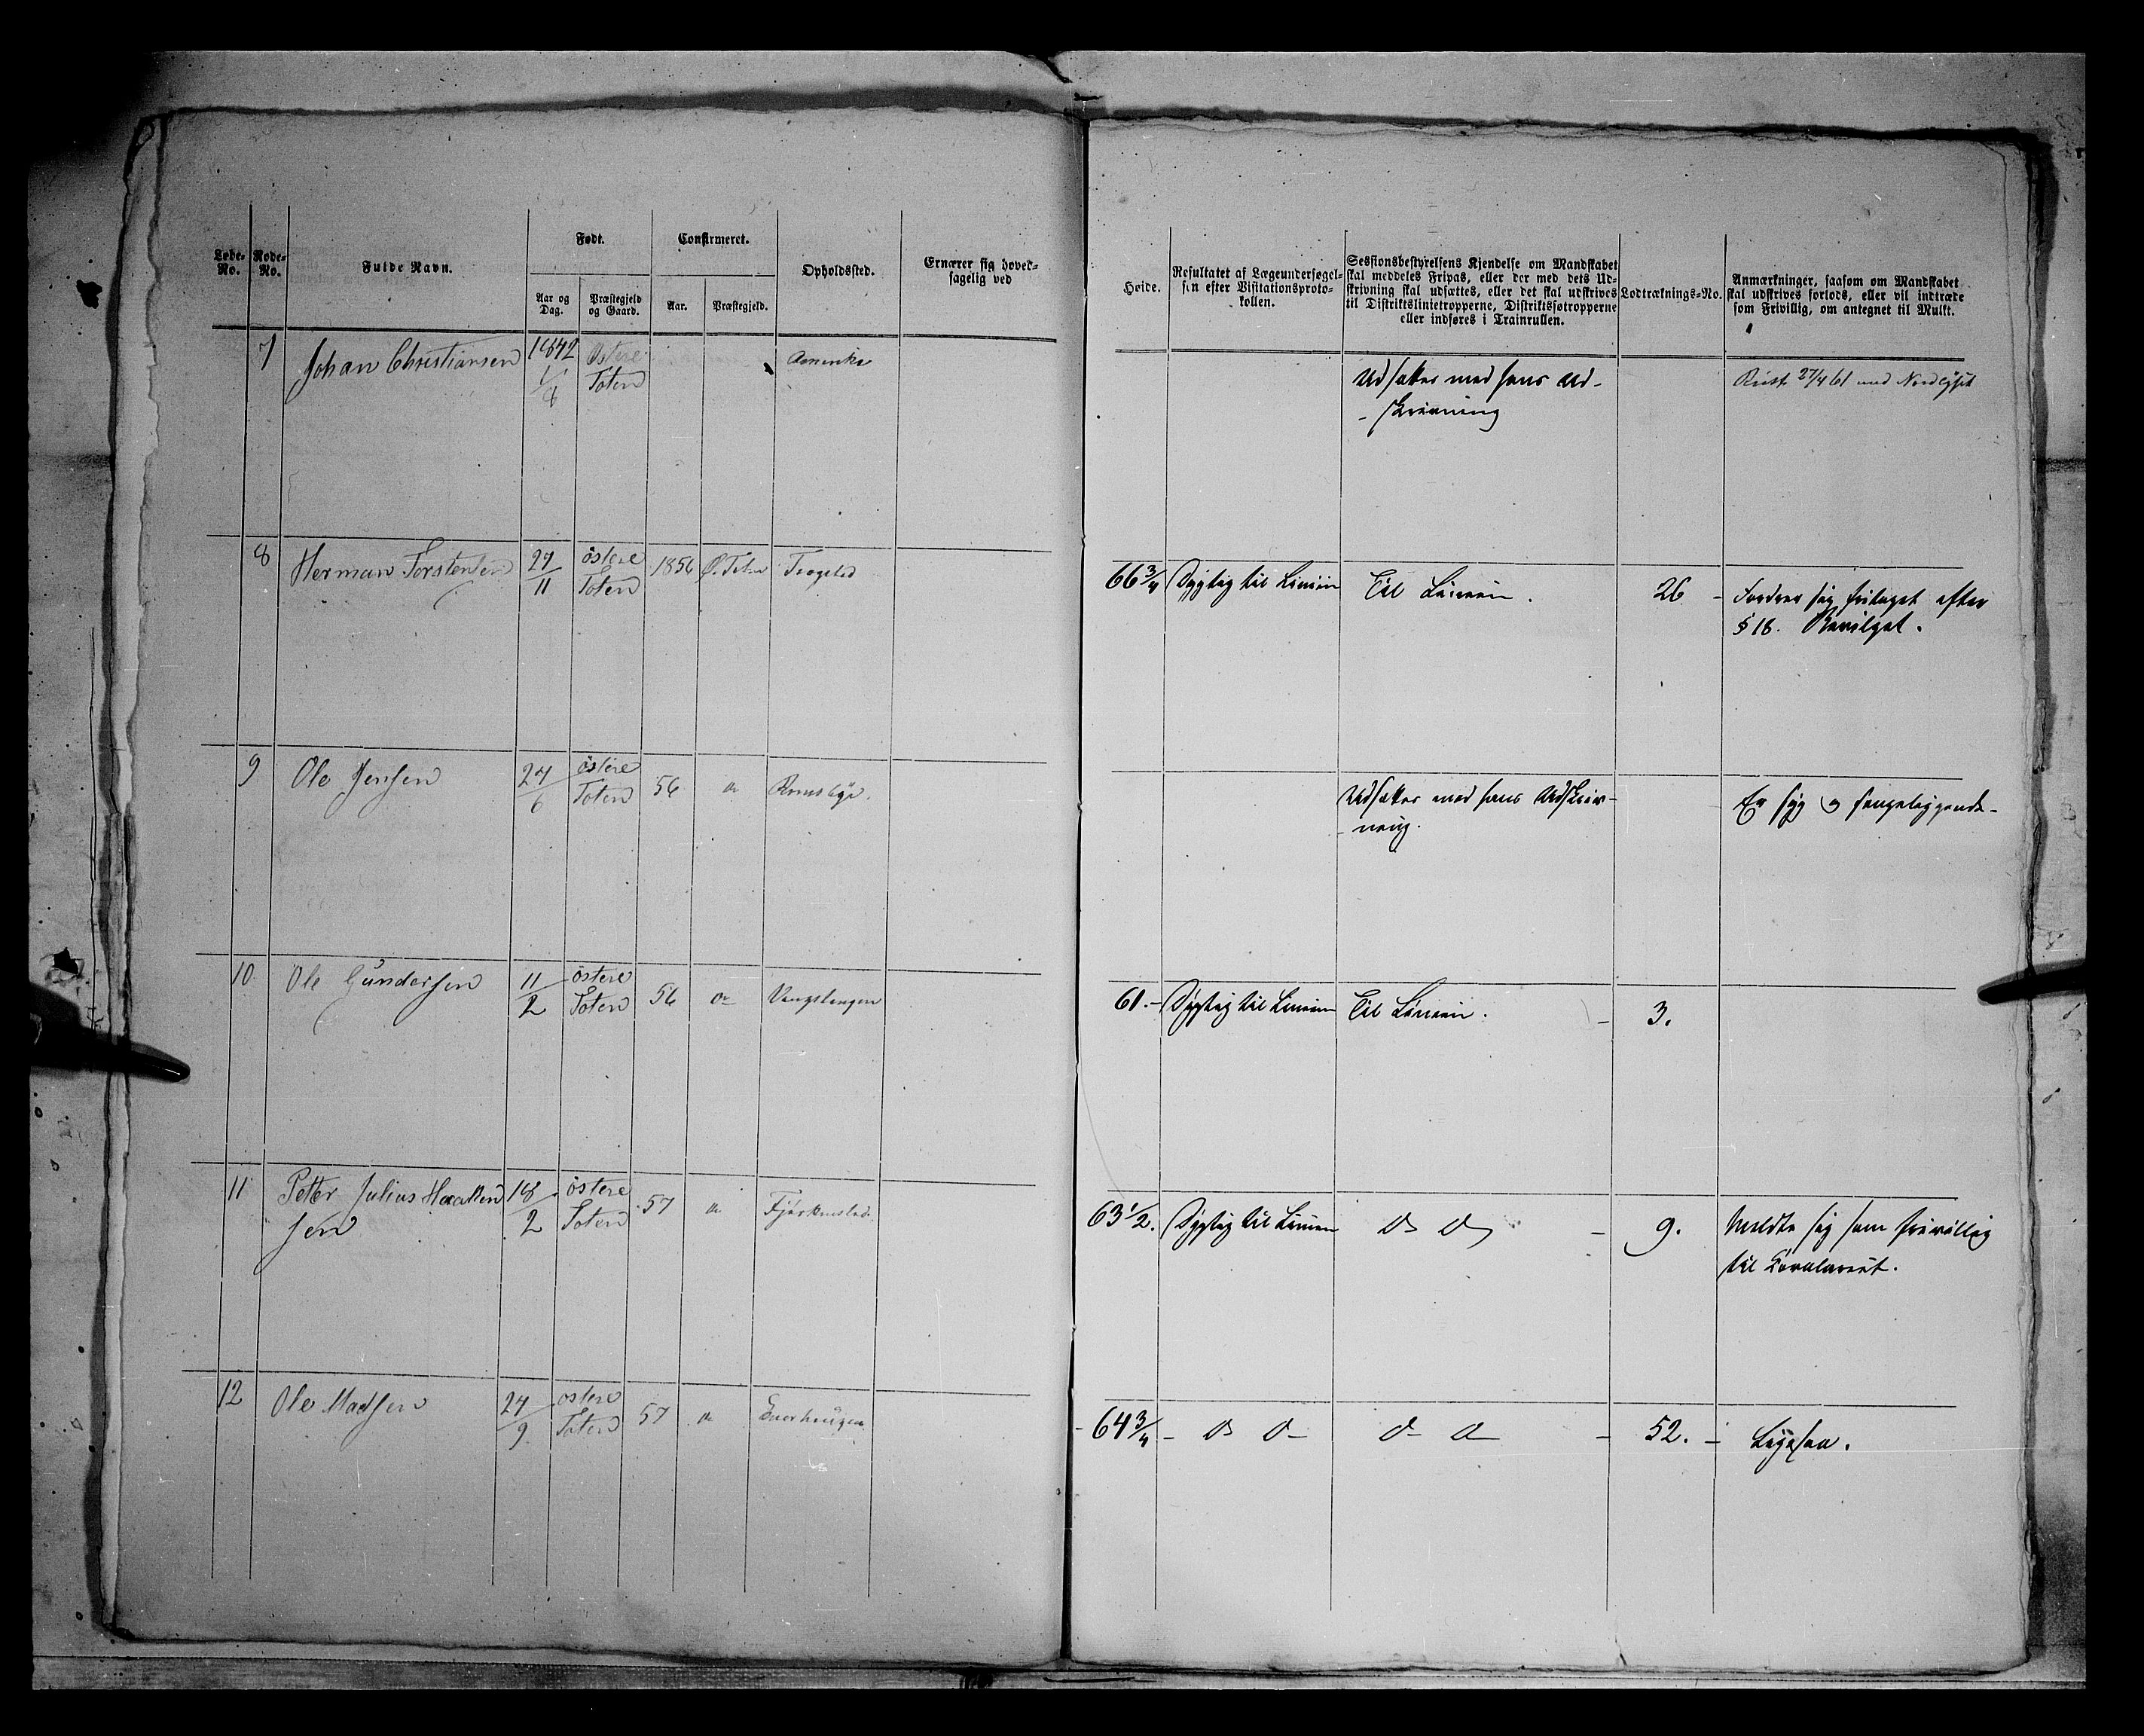 Løbe-
No.
Rode-
No.
Fulde Navn.
Født.
Aar og
Dag.
Præstegjeld
og Gaard.
Confirmeret.
Aar.
Præstegjeld.
Opholdssted.
Ernærer sig hoved-
sagelig ved
Høide.
Resultatet af Lægeundersøgel-
sen efter Visitationsproto-
kollen.
Sessionsbestyrelsens Kjendelse om Mandskabet
skal meddeles Fripas, eller der med dets Ud-
skrivning skal udsættes, eller det skal udskrives
til Distriktslinietropperne, Distriktsøtropperne
eller indføres i Trainrullen.
Lodtræknings-No.
Anmærkninger, saasom om Mandskabet
skal udskrives forlods, eller vil indtræde
som Frivillig, om antegnet til Mulkt.
7 Johan Christiansen 1842 Østere Amerika
1/8 Toten
Udsættes med hans Ud-
-skrivning
Reist 27/4 61 med Nordlyset
8 Herman Torstensen 27/11 østere Toten 1856 Ø. Toten
66 3/4 Dygtig til Linien Til Linien. 26 - Fordrer sig fritaget efter
§ 18. Bevilget.
9 Ole Jensen 24/6 østere Toten 56 do
Udsættes med hans Udskriv-
-ning.
Er syg og sengeliggende-
10 Ole Gundersen 11/2 østere Toten 56 do
61.- Dygtig til Linien Til Linien. - 3.
11 Petter Julius Haaken 18/2 østere Toten 57 do
sen
63 1/2. Dygtig til Linien do do - 9. Meldte sig som frivillig
til Cavaleriet.
12 Ole Madsen 24/9 østere Toten 57 do Enerhaugen
- 64 3/4 - do do do do - 52. - Ligesaa.